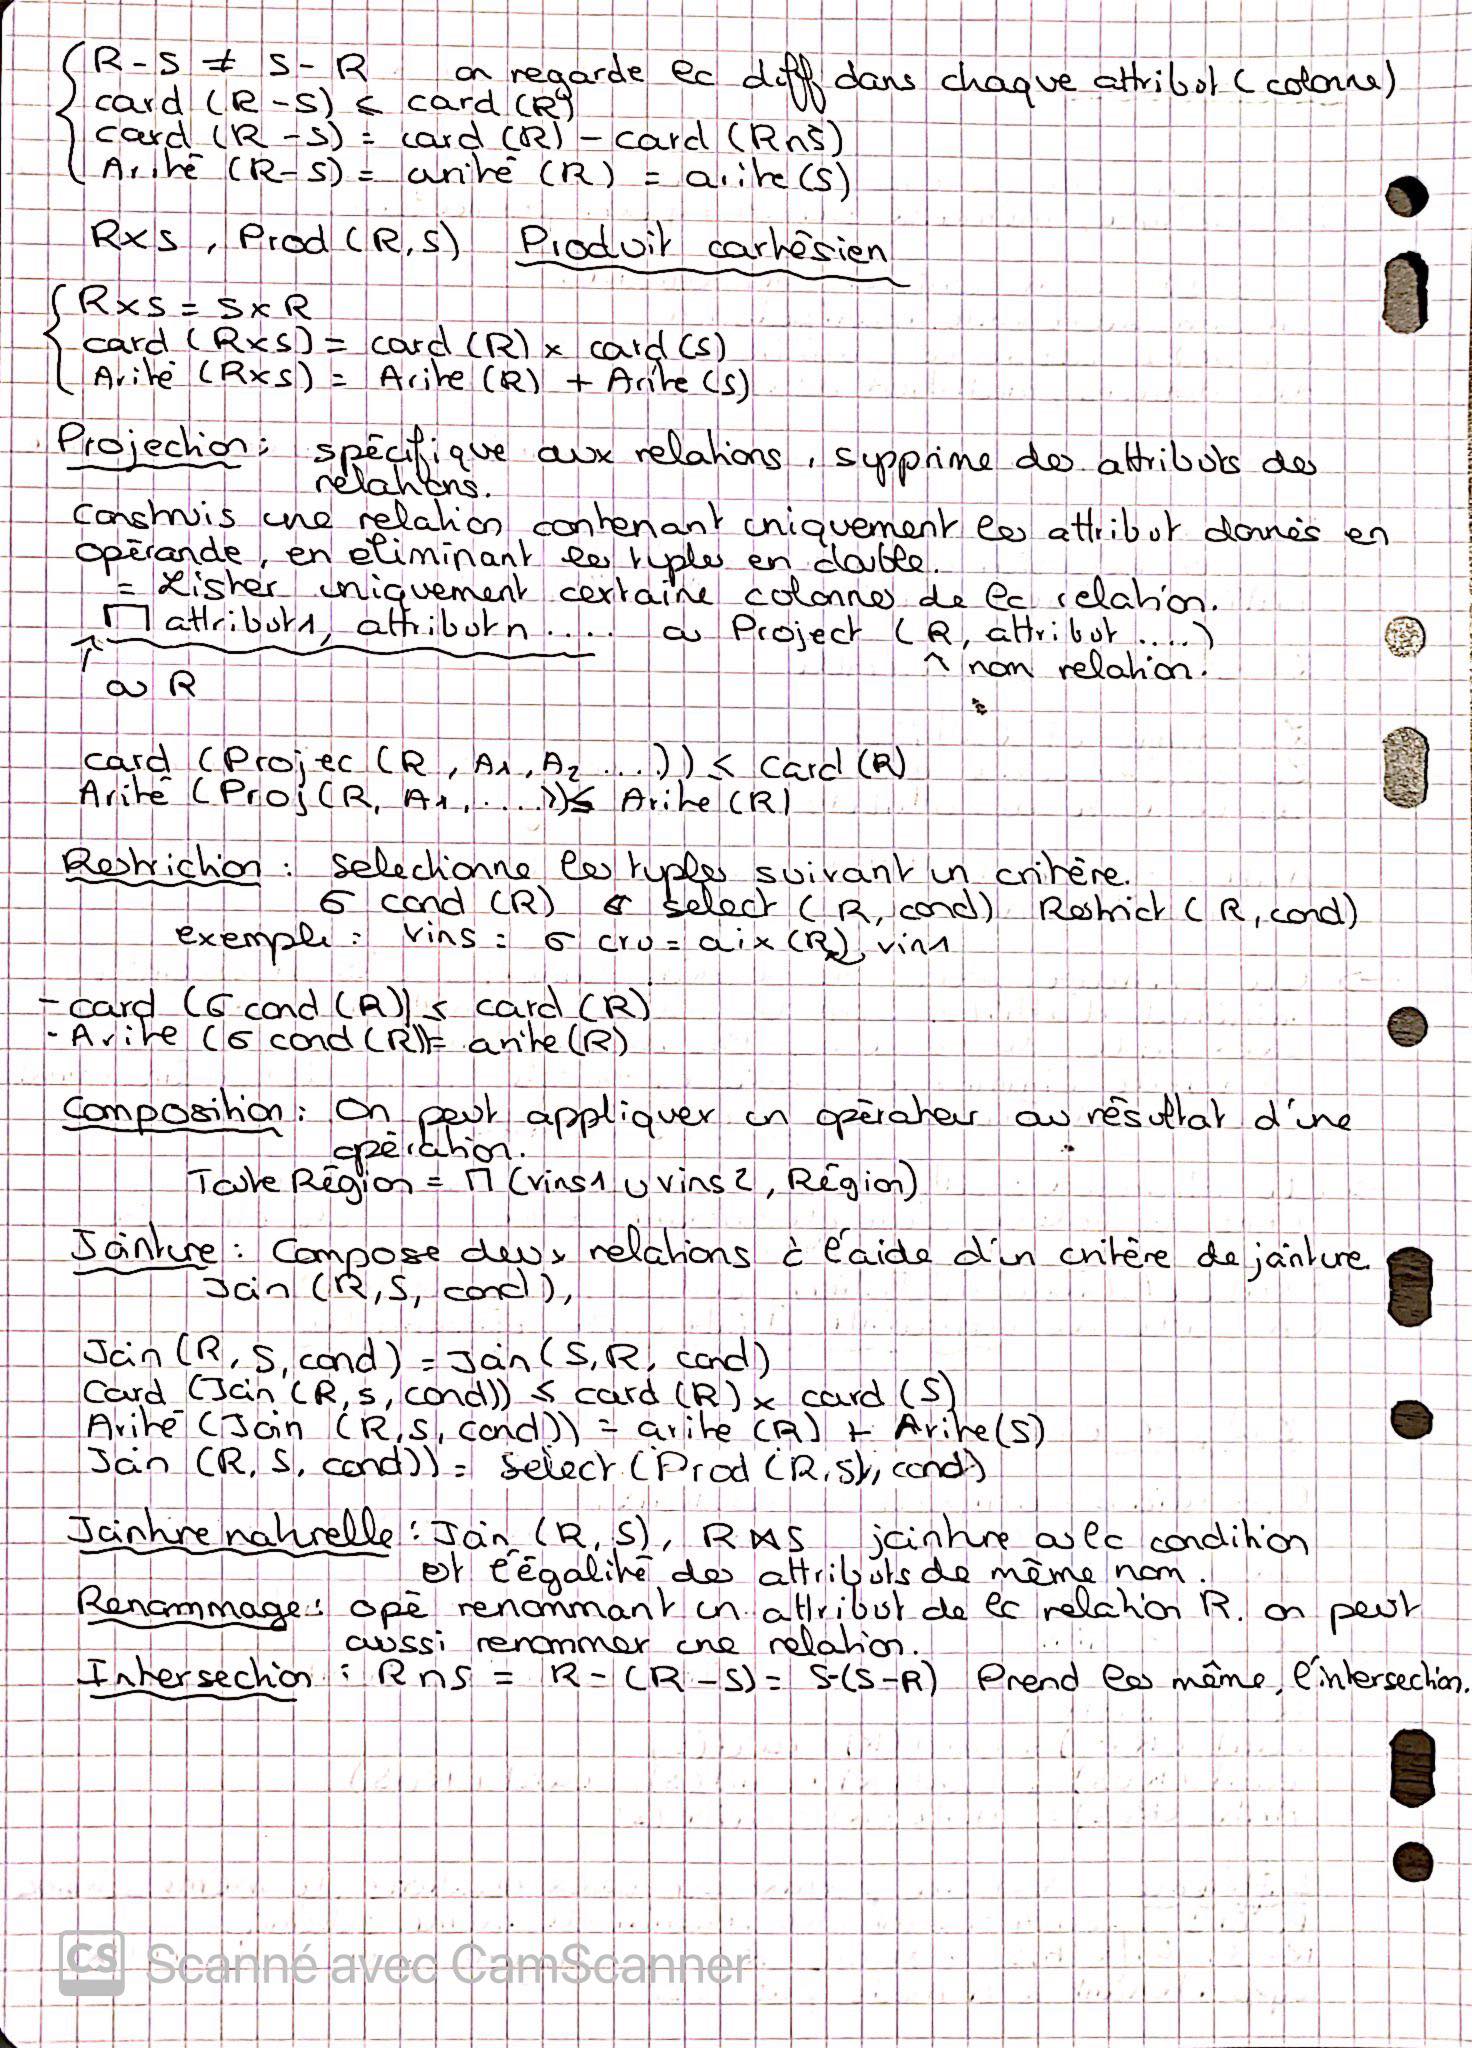 R - S ≠ S - R on regarde la diff dans chaque attribut (colonne)
card (R - S) ≤ card (R)
card (R - S) = card (R) - card (R∩S)
Arité (R - S) = arité (R) = arite (S)
R×S, Prod (R,S) Produit carthésien
R×S = S×R
card (R×S) = card (R) × card (S)
Arité (R×S) = Arite (R) + Arite (S)
Projection : spécifique aux relations, supprime des attributs des
relations.
construis une relation contenant uniquement les attribut donnés en
opérande, en éliminant les tuples en double.
= Lister uniquement certaine colonnes de la relation.
Π attribut1, attributn .... ou Project (R, attribut ....)
↑ ou R
^ nom relation.
card (Projec (R, A1, A2 ....)) ≤ Card (R)
Arité (Proj (R, A1, ....)) ≤ Arite (R)
Restriction : selectionne les tuples suivant un critère.
σ cond (R) select (R, cond) Restrict (R, cond)
exemple : vins = σ cru = aix (R) vin1
- card (σ cond (R)) ≤ card (R)
- Arite (σ cond (R)) = arite (R)
Composition : On peut appliquer un opérateur au résultat d'une
opération.
Toute Région = Π (vins1 ∪ vins2, Région)
Jointure : Compose deux relations à l'aide d'un critère de jointure.
Join (R, S, cond),
Join (R, S, cond) = Join (S, R, cond)
Card (Join (R, S, cond)) ≤ card (R) × card (S)
Arité (Join (R, S, cond)) = arite (R) + Arite (S)
Join (R, S, cond)) = Select (Prod (R, S), cond)
Jointure naturelle : Join (R, S), R ⋈ S jointure où la condition
est l'égalité des attributs de même nom.
Renommage : opé renommant un attribut de la relation R. on peut
aussi renommer une relation.
Intersection : R∩S = R - (R - S) = S - (S - R) Prend les même, l'intersection.
CS Scanné avec CamScanner